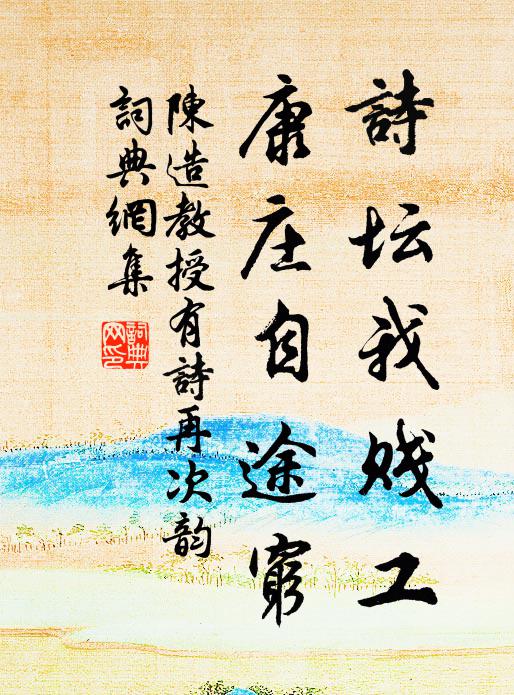 詩坛我贱工
康庄自途窮
陳造教授有詩再次韵
詞典網集
詞典网印